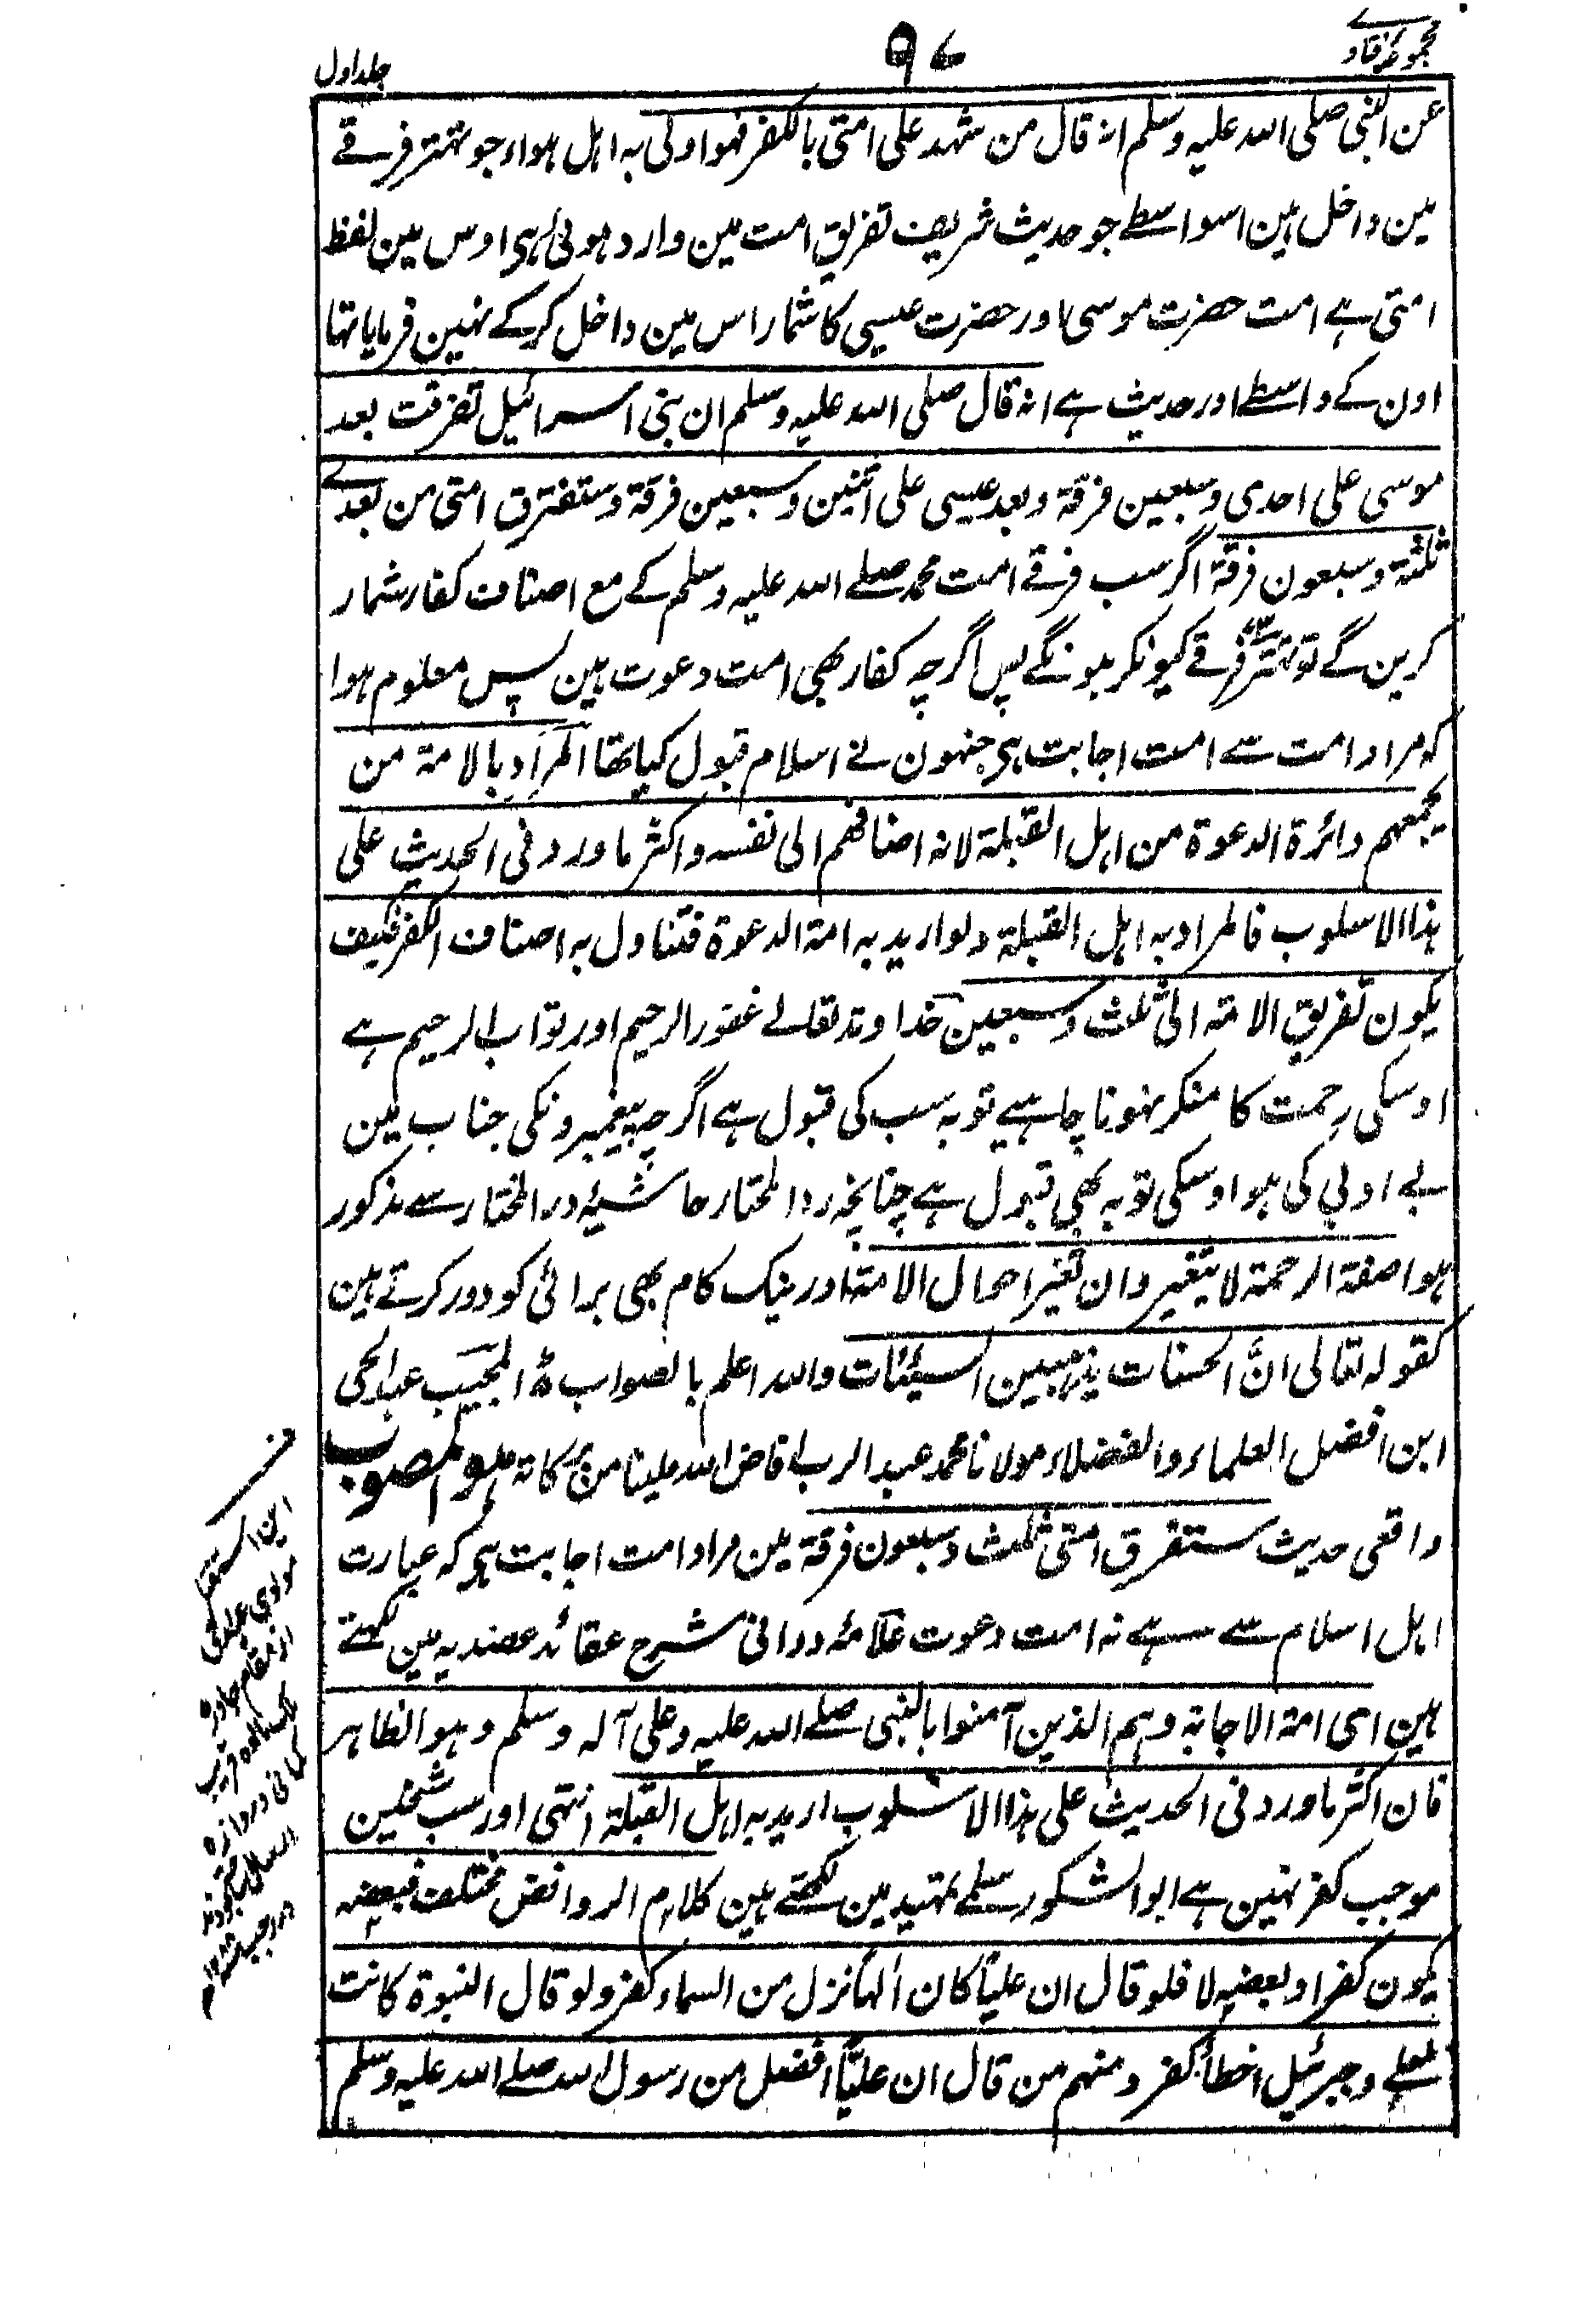 مجموعۂ فتاوے
۹۷
جلد اول
عن النبی صلی اللہ علیہ وسلم انہ قال من شہد علی امتی بالکفر فہو اولی بہ اہل ہواء جو تہتر فرقے
مین داخل ہین اسواسطے جو حدیث شریف تفریق امت مین وارد ہوئی ہی اوس مین لفظ
امتی ہے امت حضرت موسی اور حضرت عیسی کا شمار اس مین داخل کرکے نہین فرمایا تہا
اون کے واسطے اور حدیث ہے انہ قال صلی اللہ علیہ وسلم ان بنی اسرائیل تفرقت بعد
موسی علی احدی وسبعین فرقۃ وبعد عیسی علی اثنین وسبعین فرقۃ وستفترق امتی من بعدے
ثلثۃ وسبعون فرقۃ اگر سب فرقے امت محمد صلے اللہ علیہ وسلم کے مع اصناف کفار شمار
کرین گے تو تہتر فرقے کیونکر ہونگے پس اگرچہ کفار بھی امت دعوت ہین پس معلوم ہوا
کہ مراد امت سے امت اجابت ہی جنہون نے اسلام قبول کیا تھا المراد بالامۃ من
یجمعہم دائرۃ الدعوۃ من اہل القبلۃ لانہ اضافہم الی نفسہ واکثر ما ورد فی الحدیث علی
ہذا الاسلوب فالمراد بہ اہل القبلۃ ولو ارید بہ امۃ الدعوۃ فتناول بہ اصناف الکفر فکیف
یکون تفریق الامۃ الی ثلث وسبعین خداوند تعالے غفور الرحیم اور تواب الرحیم ہے
اوسکی رحمت کا منکر نہونا چاہیے توبہ سب کی قبول ہے اگرچہ پیغمبرونکی جناب مین
بے ادبی کی ہو اوسکی توبہ بھی قبول ہے چنانچہ رد المختار حاشیۂ در المختار سے مذکور
ہوا صفۃ الرحمۃ لا یتغیر وان تغیر احوال الامۃ اور نیک کام بھی برائی کو دور کرتے ہین
کقولہ تعالی انّ الحسنات یذہبین السیئات واللہ اعلم بالصواب المجیب عبد الحی
ابن افضل العلماء والفضلاء مولانا محمد عبد الرب افاض اللہ علینا من برکاتہ ہو المصوب
واقعی حدیث ستفرق امتی ثلث وسبعون فرقۃ مین مراد امت اجابت ہی کہ عبارت
اہل اسلام سے ہے نہ امت دعوت علامۂ دوانی شرح عقائد عضدیہ مین لکہتے
ہین ای امۃ الاجابۃ وہم الذین آمنوا بالنبی صلے اللہ علیہ وعلی آلہ وسلم وہو الظاہر
فان اکثر ما ورد فی الحدیث علی ہذا الاسلوب ارید بہ اہل القبلۃ انتہی اور سب شیخین
موجب کفر نہین ہے ابو الشکور سلمے تمہید مین لکھتے ہین کلام الروافض مختلف فبعضہ
یکون کفرا وبعضہ لا فلو قال ان علیاً کان الہاً نزل من السماء کفر ولو قال النبوۃ کانت
لعلے وجبرئیل اخطأ کفر ومنہم من قال ان علیاً افضل من رسول اللہ صلے اللہ علیہ وسلم
این استفتا
مولوی عبد الحی
از مقام جاورہ